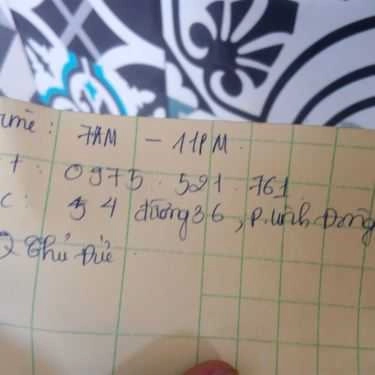 time: 7AM - 11PM.
t: 0975.521.761
c: 54 đường 36, P. Linh Đông
Q Thủ Đức.